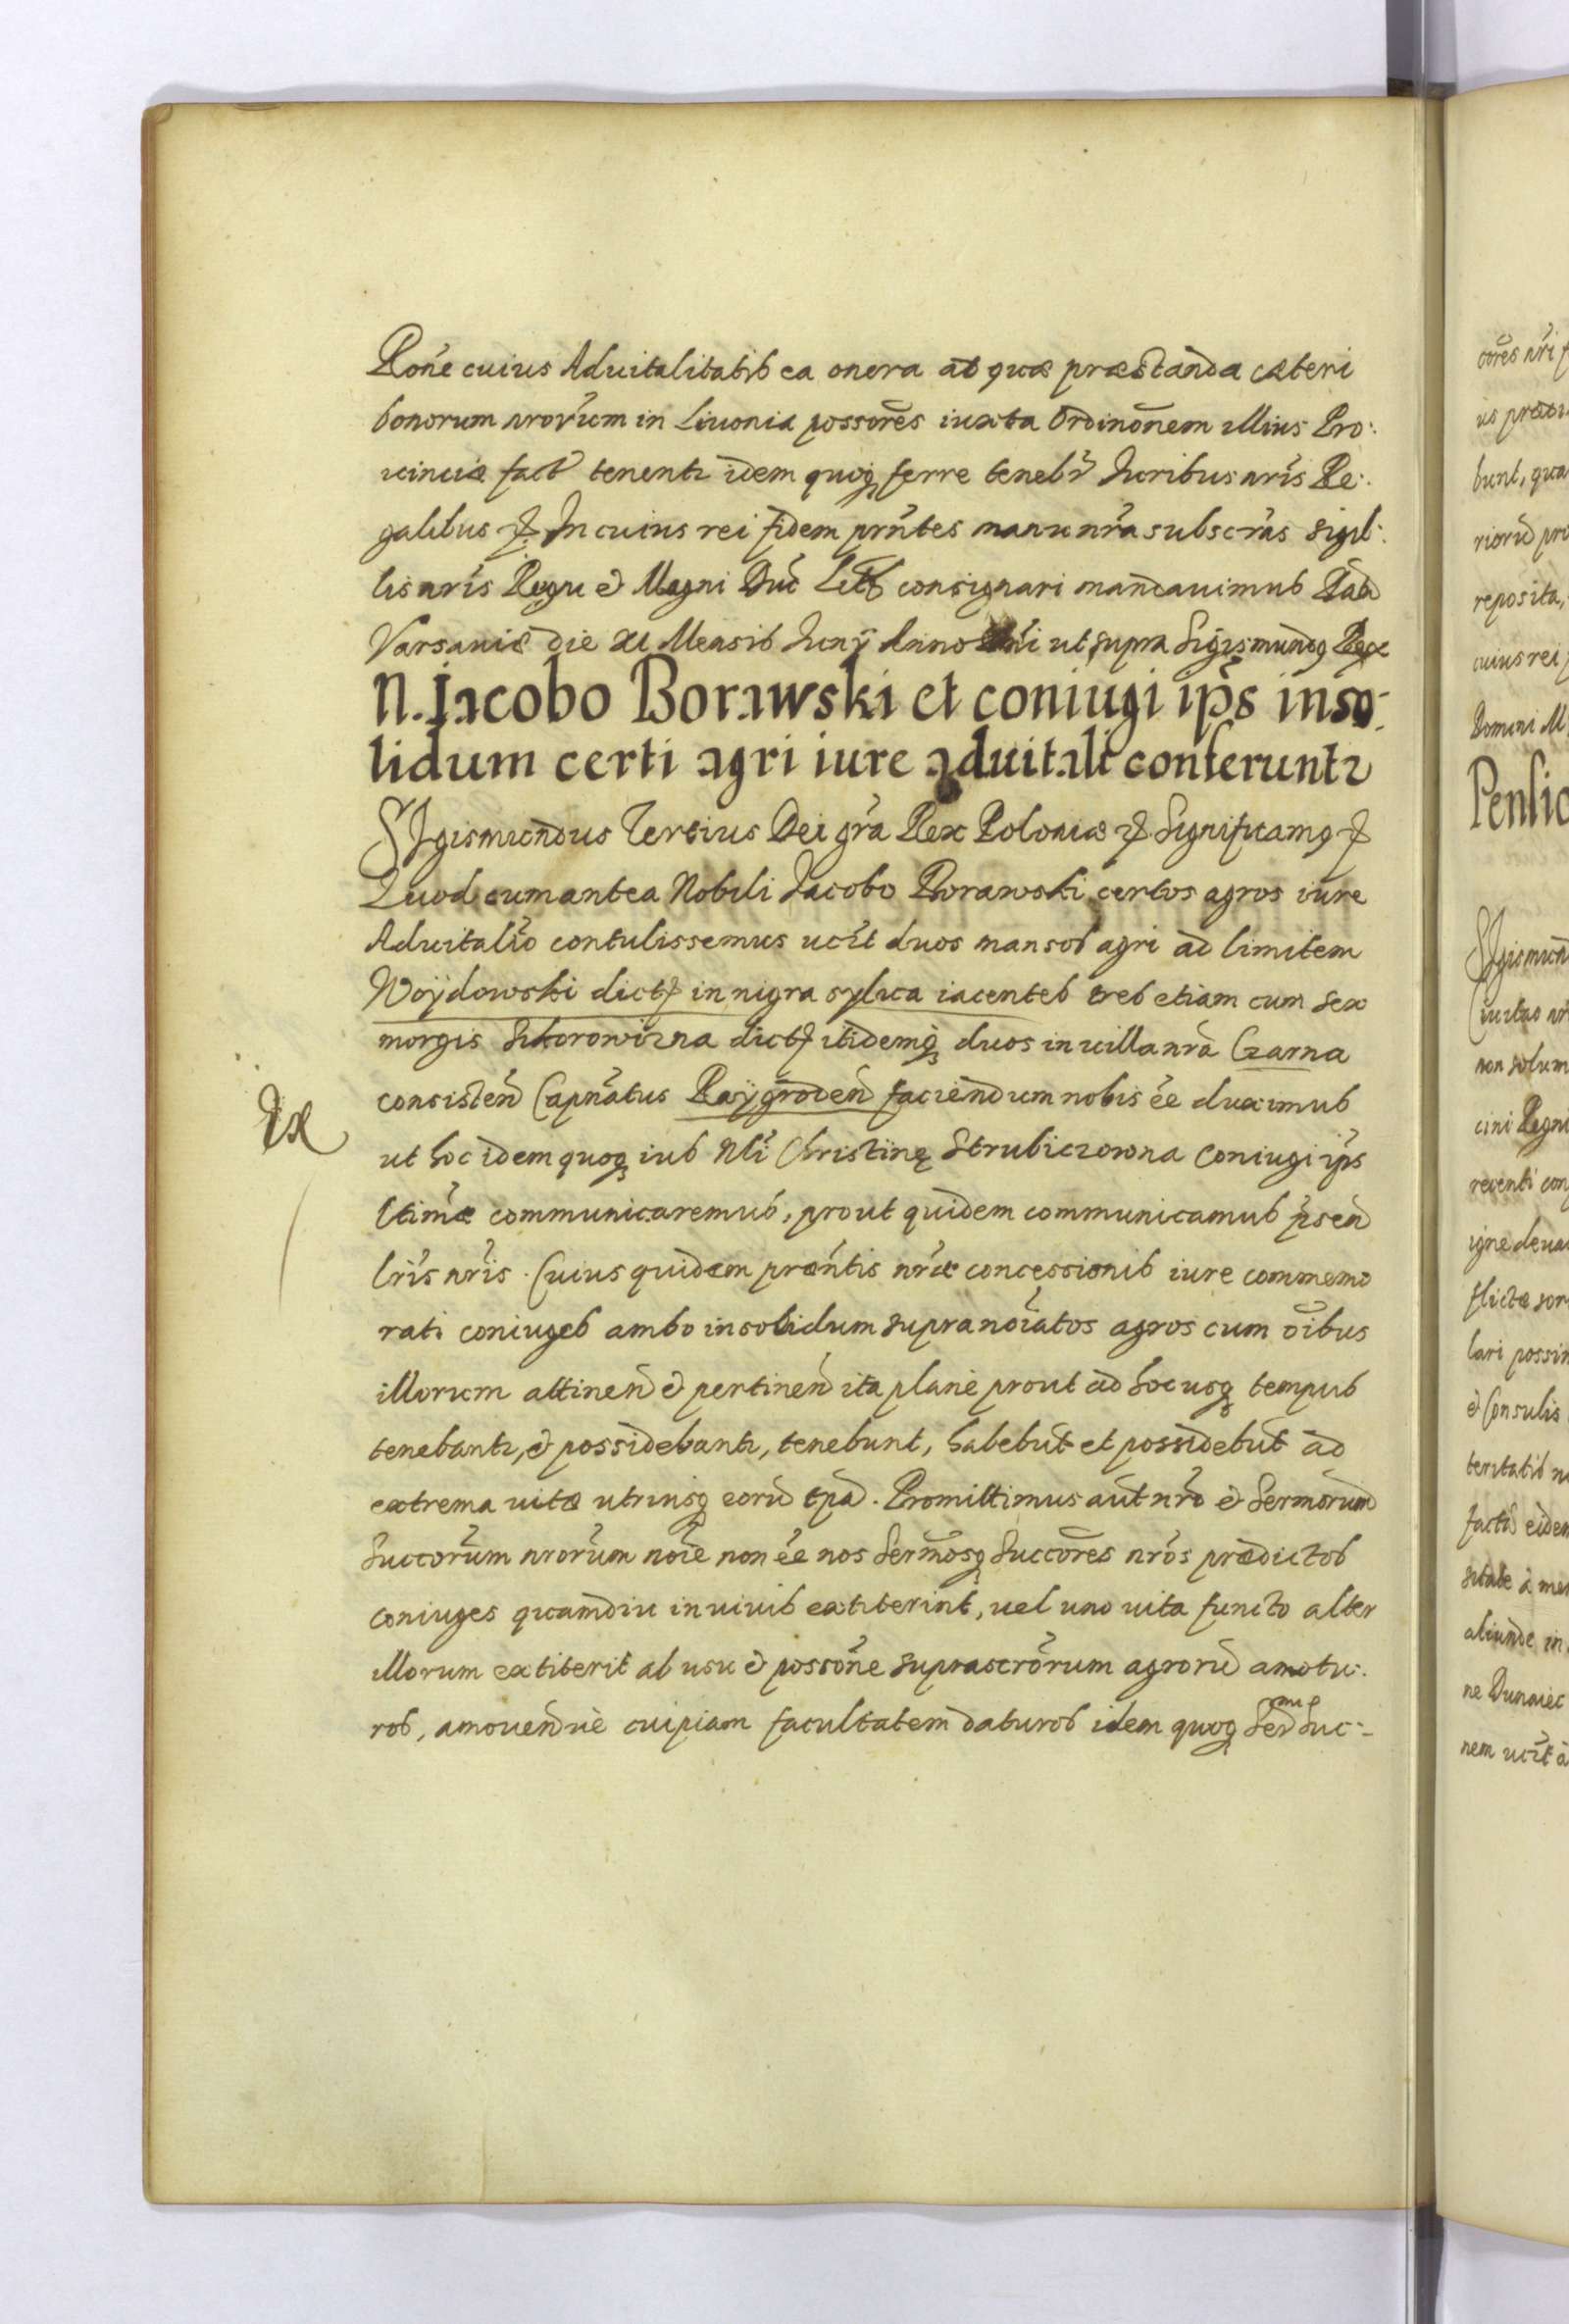 Rone cuius Aduitalitatis ea onera at quæ præstanda cæteri
bonorum nrorum in Liuonia possores iuxta Ordinonem illius Pro:
uinciæ fact tenentr idem quoq ferre tenebr Juribus nris Re:
galibus In cuius rei fidem prntes manu nra subscras sigil:
lis nris Regni & Magni Duc Litt consignari mandauimus Dat
Varsauiæ die XI Mensis Juny Anno Dni ut supra Sigismundq Rex
N. Jacobo Borawski et coniugi ips inso:
lidum certi agri iure aduitalt conferuntr
SIgismundus Tertius Dei gra Rex Poloniæ Significamq
Quod cum antea Nobili Jacobo Borawski certos agros iure
Aduitalio contulissemus uczt duos mansos agri ad limitem
Woÿdowski dict in nigra sylua iacentes tres etiam cum sex
morgis Sikorowizna dict itidemq duos in uilla nra Czarna
consisten Capnatus Raÿgroden faciendum nobis ee duximus
ut hoc idem quoq ius Nli Christinę Strubiczowna Coniugi ips
Ltimæ communicaremus, prout quidem communicamus psen
Lris nris. Cuius quidem præntis nræ concessionis iure commemo
rati coniuges ambo insolidum supranoiatos agros cum oibus
illorum attinen & pertinen ita plane prout ad hoc usq tempus
tenebantr, & possidebantr, tenebunt, habebut et possidebut ad
extrema uitæ utriusq eoru tpa. Promittimus aut nro & Sermorum
Succorum nrorum noie non ee nos Sermosq Succores nros prædictos
coniuges quamdiu in uiuis extiterint, uel uno uita functo alter
illorum extiterit ab usu & possone suprascrorum agroru amotu:
ros, amouendiue cuipiam facultatem daturos idem quoq Ser Suc: